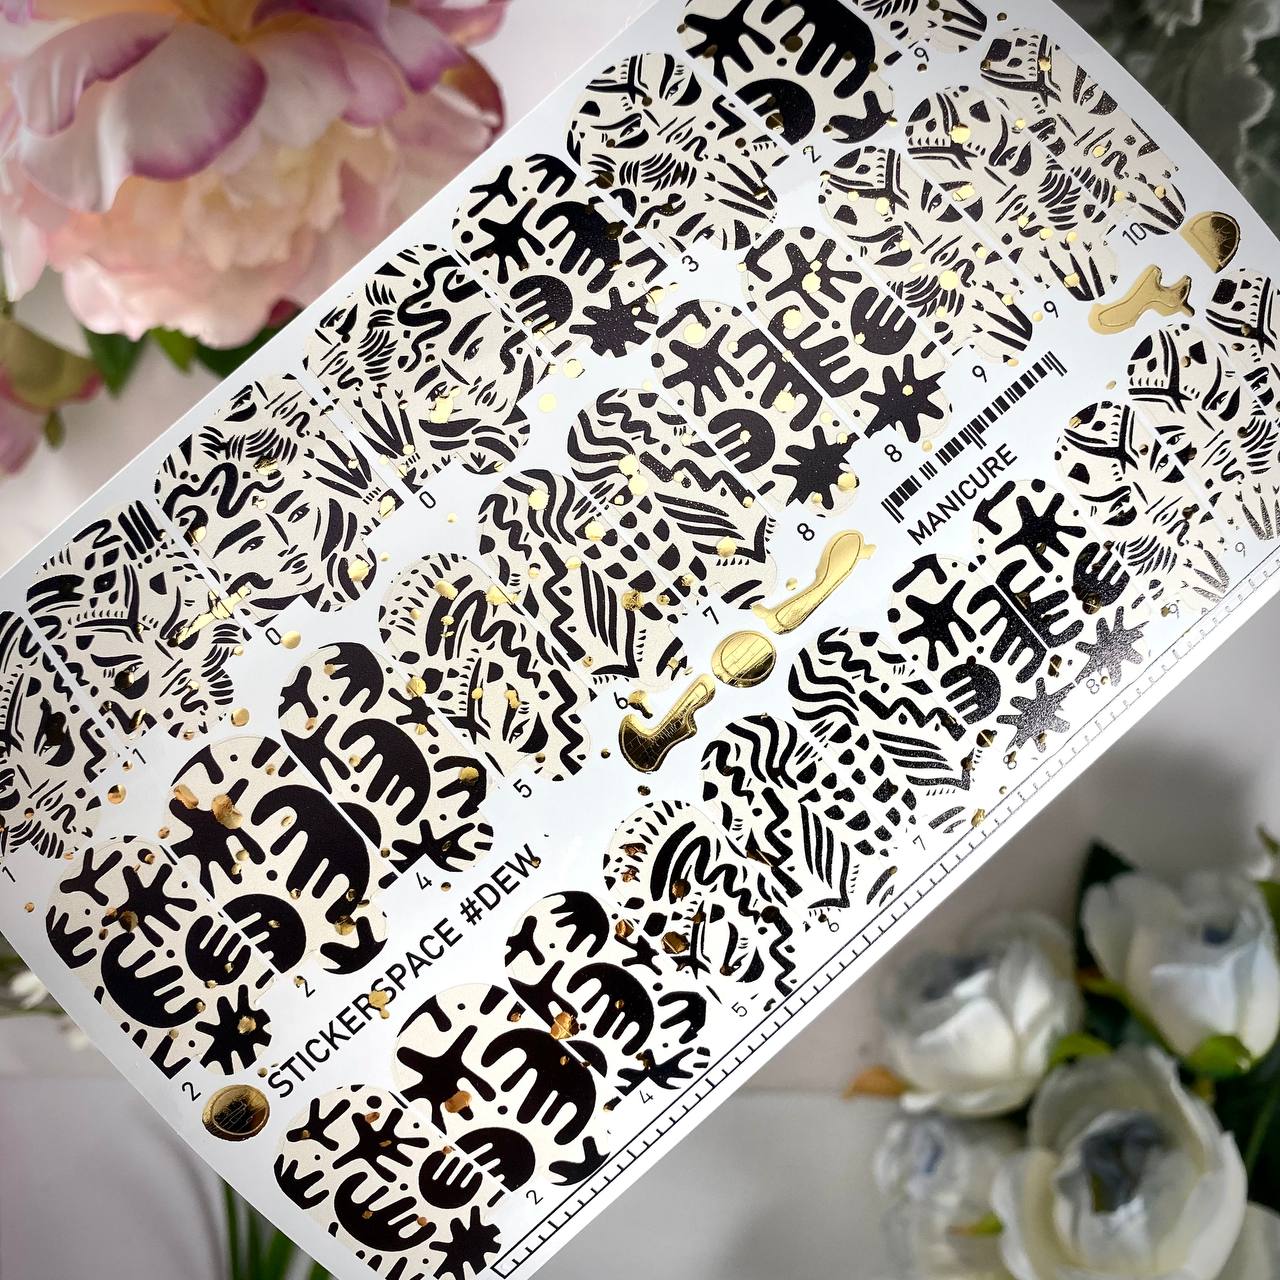 STICKERSPACE #DEW
MANICURE
9
10
2
3
9
9
0
8
8
0
7
6
1
5
1
4
2
2
9
9
8
8
7
6
5
4
2